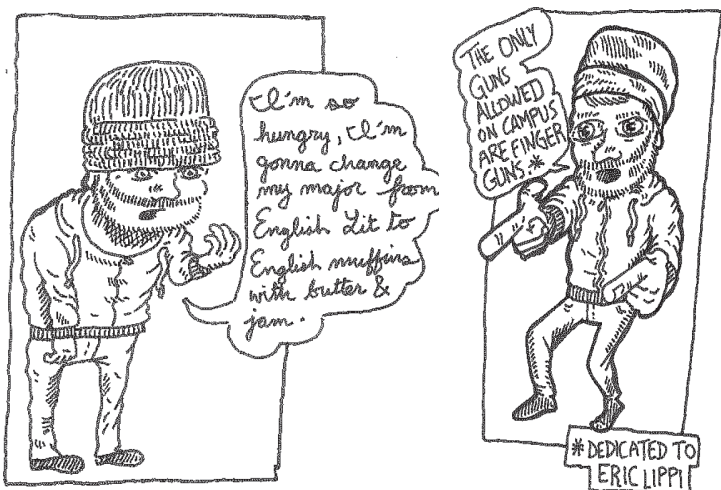 I'm so
hungry, I'm
gonna change
my major from
English Lit to
English muffins
with butter &
jam.
THE ONLY
GUNS
ALLOWED
ON CAMPUS
ARE FINGER
GUNS.*
*DEDICATED TO
ERIC LIPPI